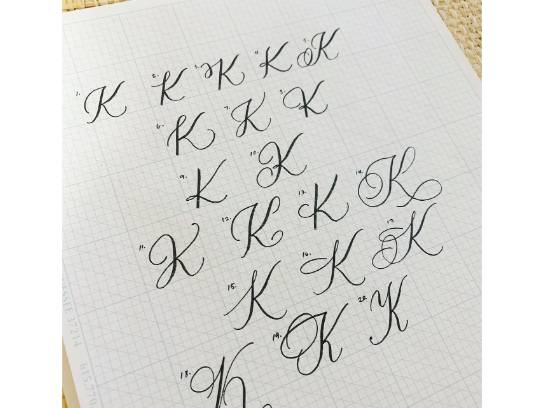 1. K 2. K 3. K 4. K 5. K
6. K 7. K 8. K
9. K 10. K
11. K 12. K 13. K 14. K
15. K 16. K 17. K
18. K 19. K 20. K